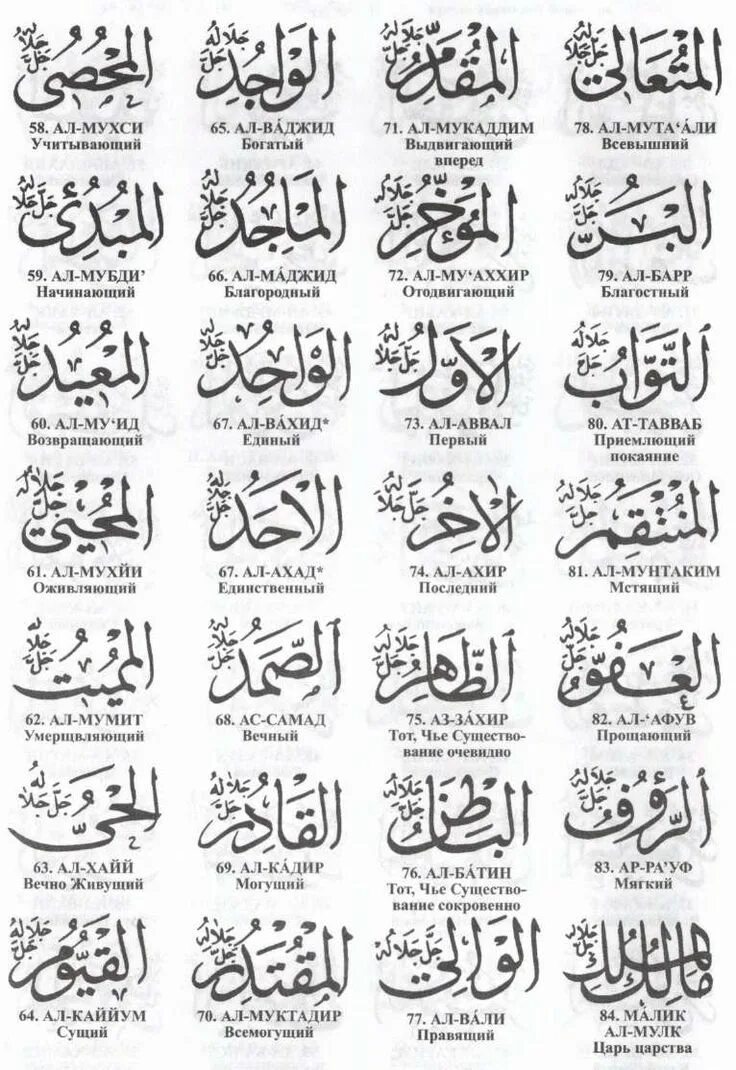 المُحْصِي جل جلاله
58. АЛ-МУХСИ
Учитывающий
المُبْدِئُ جل جلاله
59. АЛ-МУБДИ’
Начинающий
المُعِيدُ جل جلاله
60. АЛ-МУ‘ИД
Возвращающий
المُحْيِي جل جلاله
61. АЛ-МУХЙИ
Оживляющий
المُمِيتُ جل جلاله
62. АЛ-МУМИТ
Умерщвляющий
الحَيُّ جل جلاله
63. АЛ-ХАЙЙ
Вечно Живущий
القَيُّومُ جل جلاله
64. АЛ-КАЙЙУМ
Сущий
الوَاجِدُ جل جلاله
65. АЛ-ВА́ДЖИД
Богатый
المَاجِدُ جل جلاله
66. АЛ-МА́ДЖИД
Благородный
الوَاحِدُ جل جلاله
67. АЛ-ВА́ХИД*
Единый
الاَحَدُ جل جلاله
67. АЛ-АХАД*
Единственный
الصَّمَدُ جل جلاله
68. АС-САМАД
Вечный
القَادِرُ جل جلاله
69. АЛ-КА́ДИР
Могущий
المُقْتَدِرُ جل جلاله
70. АЛ-МУКТАДИР
Всемогущий
المُقَدِّمُ جل جلاله
71. АЛ-МУКАДДИМ
Выдвигающий
вперед
المُؤَخِّرُ جل جلاله
72. АЛ-МУ‘АХХИР
Отодвигающий
الاَوَّلُ جل جلاله
73. АЛ-АВВАЛ
Первый
الاٰخِرُ جل جلاله
74. АЛ-АХИР
Последний
الظَّاهِرُ جل جلاله
75. АЗ-ЗА́ХИР
Тот, Чье Существо-
вание очевидно
البَاطِنُ جل جلاله
76. АЛ-БА́ТИН
Тот, Чье Существо-
вание сокровенно
الوَالِي جل جلاله
77. АЛ-ВА́ЛИ
Правящий
المُتَعَالِي جل جلاله
78. АЛ-МУТА‘А́ЛИ
Всевышний
البَرُّ جل جلاله
79. АЛ-БАРР
Благостный
التَّوَّابُ جل جلاله
80. АТ-ТАВВАБ
Приемлющий
покаяние
المُنْتَقِمُ جل جلاله
81. АЛ-МУНТАКИМ
Мстящий
العَفُوُّ جل جلاله
82. АЛ-‘АФУВ
Прощающий
الرَّؤُفُ جل جلاله
83. АР-РА’УФ
Мягкий
مَالِكُ المُلْكِ جل جلاله
84. МА́ЛИК
АЛ-МУЛК
Царь царства